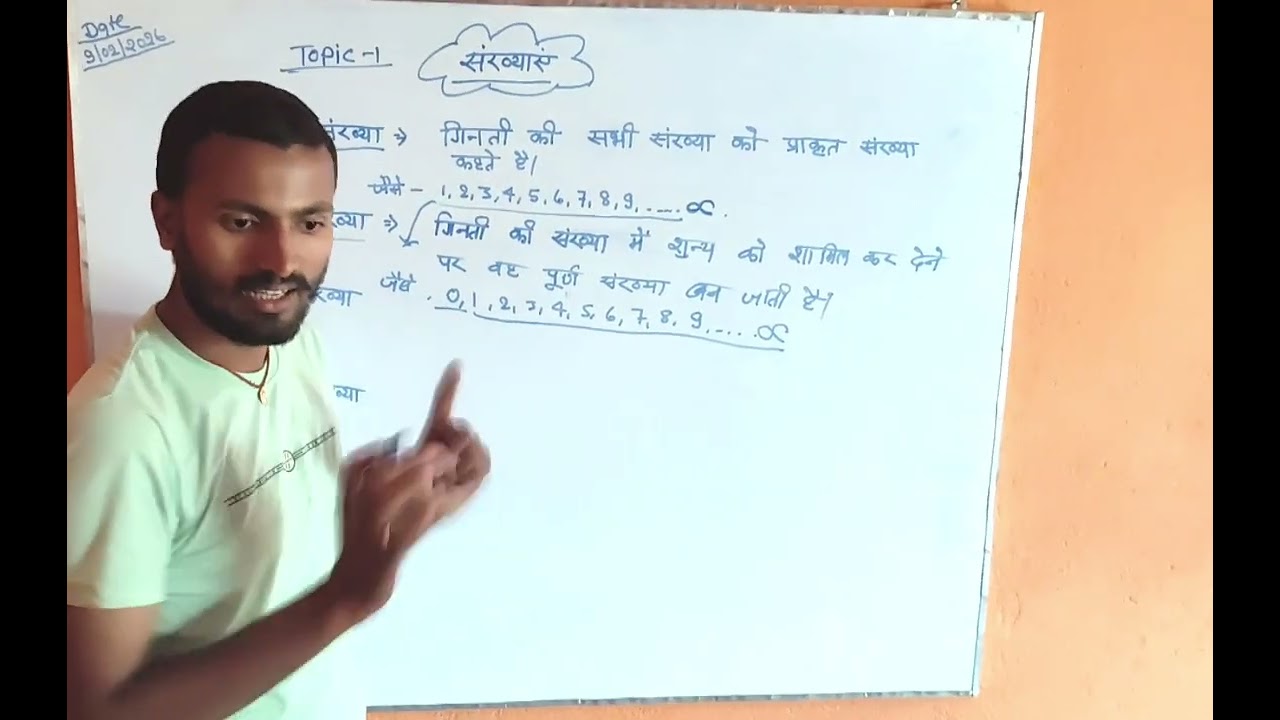 Date
9/02/2026
Topic-1
संख्यासं
संख्या ⇒ गिनती की सभी संख्या को प्राकृत संख्या
कहते है।
जैसे - 1, 2, 3, 4, 5, 6, 7, 8, 9, ..... ∝.
ख्या ⇒ गिनती की संख्या में शुन्य को शामिल कर देने
पर वह पूर्ण संख्या बन जाती है।
ख्या जैसे. 0, 1, 2, 3, 4, 5, 6, 7, 8, 9, ..... ∝
ख्या